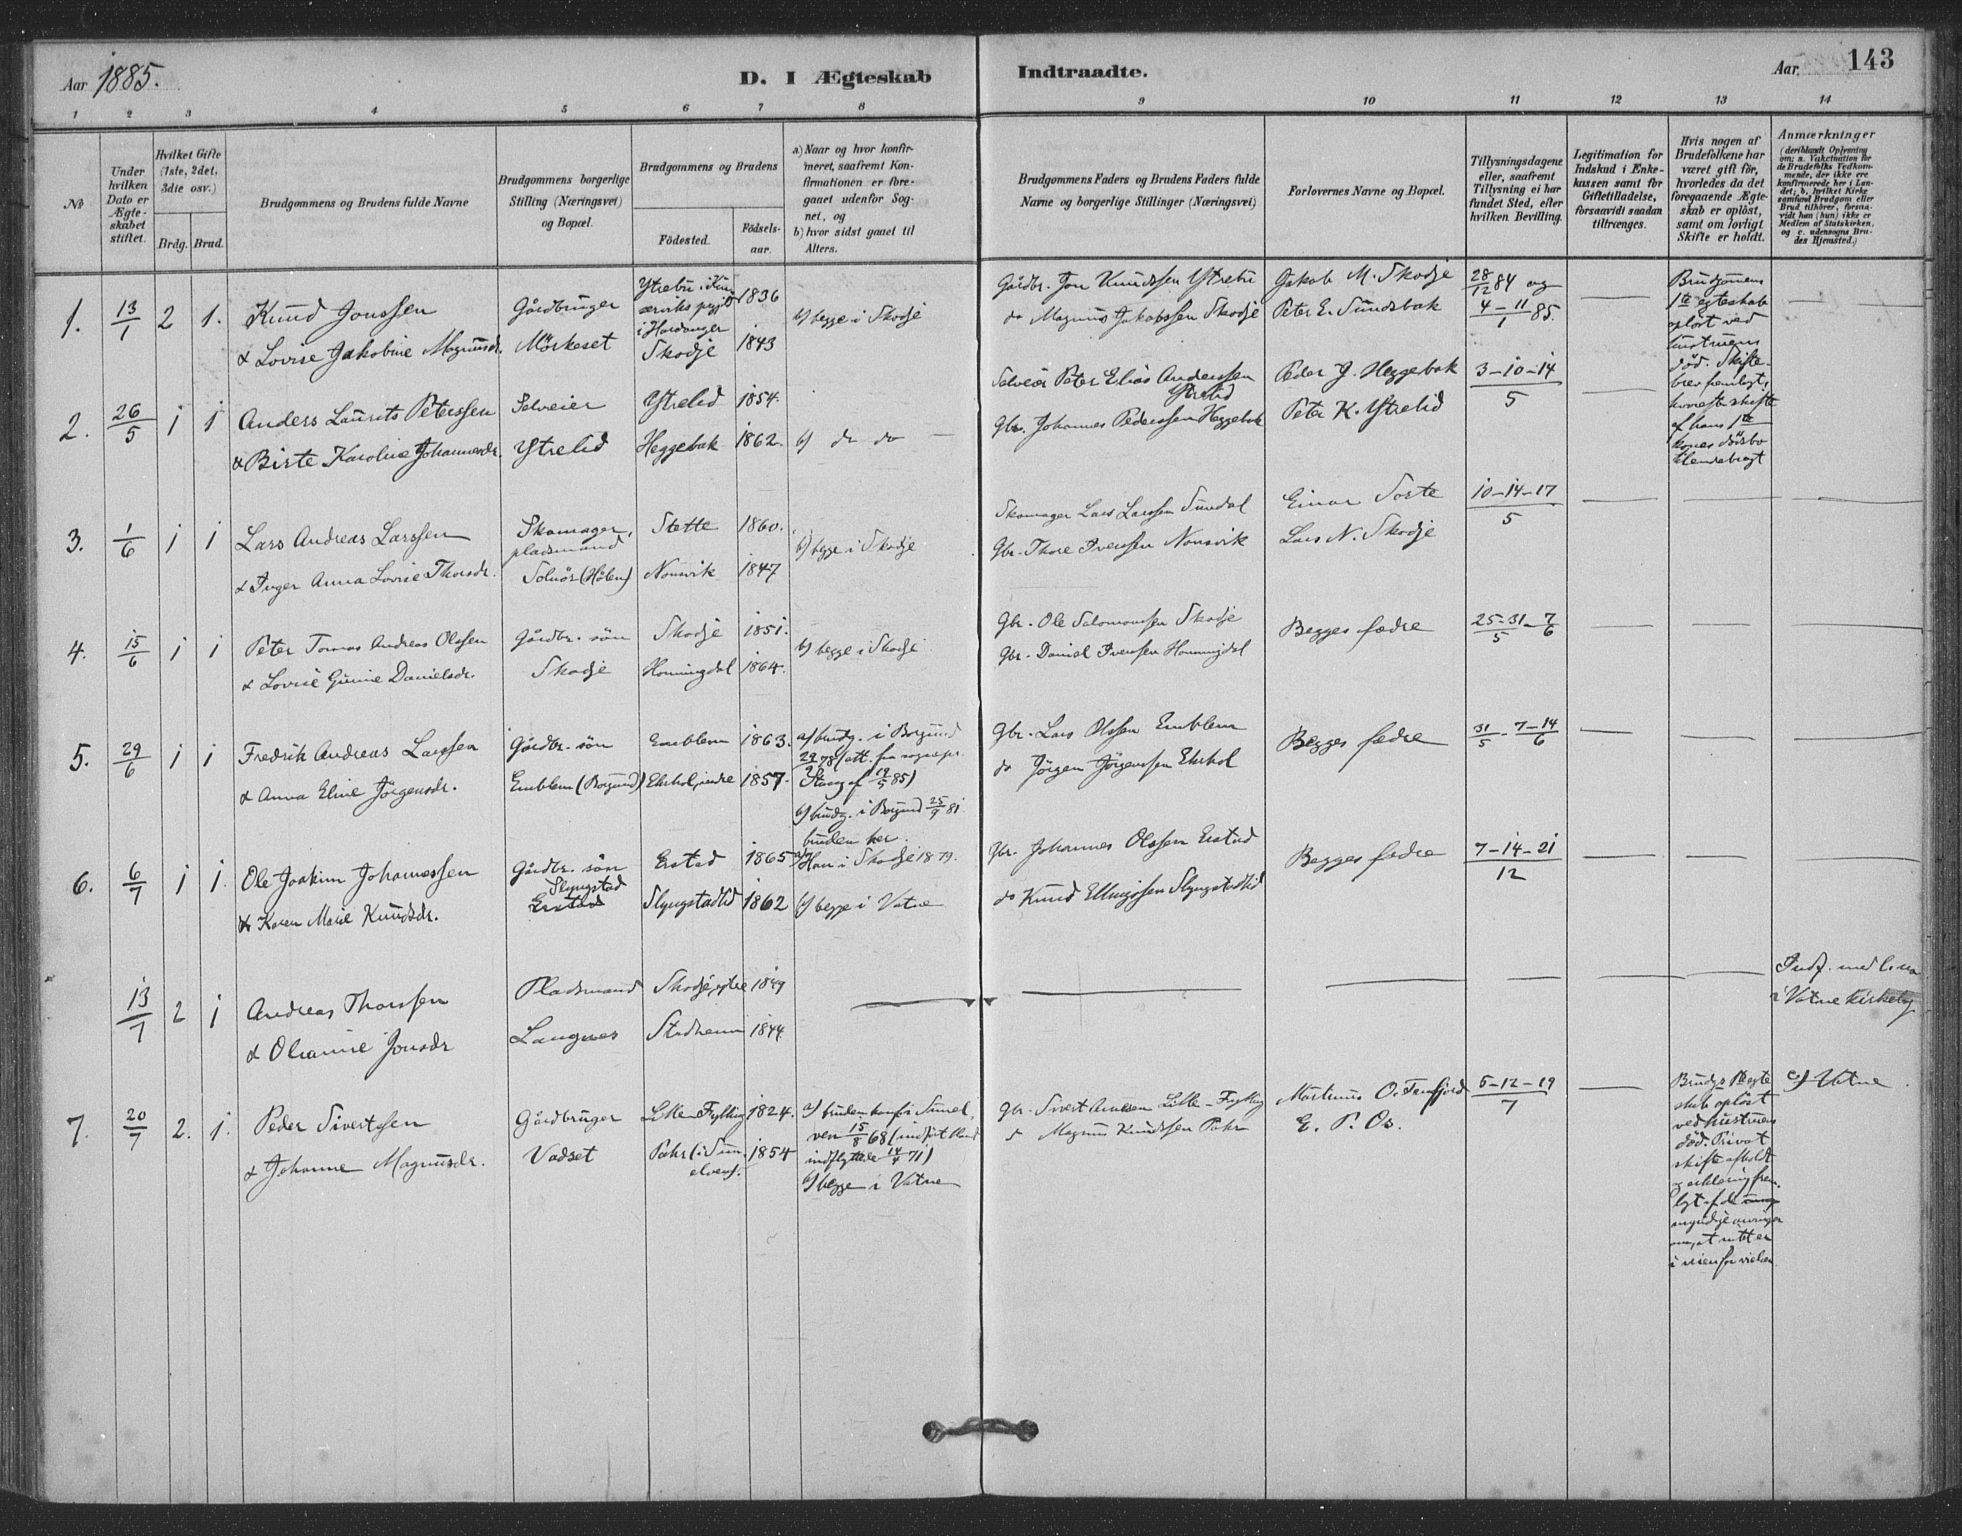 Aar 1885.
D. I Ægteskab Indtraadte.
Aar 143
1 2 3 4 5 6 7 8 9 10 11 12 13 14
No
Under hvilken Dato er Ægteskabet stiftet.
Hvilket Gifte (1ste, 2det, 3die osv.)
Brdg. Brud.
Brudgommens og Brudens fulde Navne
Brudgommens borgerlige Stilling (Næringsvei) og Bopæl.
Brudgommens og Brudens
Fødested. Fødselsaar.
a) Naar og hvor konfirmeret, saafremt Konfirmationen er foregaaet udenfor Sognet, og
b) hvor sidst gaaet til Alters.
Brudgommens Faders og Brudens Faders fulde Navne og borgerlige Stillinger (Næringsvei)
Forlovernes Navne og Bopæl.
Tillysningsdagene eller, saafremt Tillysning ei har fundet Sted, efter hvilken Bevilling.
Legitimation for Indskud i Enkekassen samt for Giftetilladelse, forsaavidt saadan tiltrænges.
Hvis nogen af Brudefolkene har været gift før, hvorledes da det foregaaende Ægteskab er opløst, samt om lovligt Skifte er holdt.
Anmærkninger (deriblandt Oplysning om: a. Vakcination for de Brudefolks Vedkommende, der ikke ere konfirmerede her i Landet; b. hvilket Kirkesamfund Brudgom eller Brud tilhører, forsaavidt han (hun) ikke er Medlem af Statskirken, og c. udensogns Brudes Hjemsted.)
1. 13/1 2 1. Knud Jonssen Gårdbruger Ytrebu i Kinserviks prgjld i Hardanger 1836 b) begge i Skodje Gårdbr. Jon Knudssen Ytrebu Jakob M. Skodje 28/12 84 og
& Lovise Jakobine Magnusdr. Mørkeset Skodje 1843 do Magnus Jakobssen Skodje Peter E. Sundsbak 4-11/1 85.
Brudgomens 1ste egteskab opløst ved hustruens død. Skiftebrev fremlagt, hvorefter skifte af hans 1ste kones dødsbo tilendebragt
2. 26/5 1 1 Anders Laurits Peterssen Selveier Ytrelid 1854. Selveier Peter Elias Anderssen Ytrelid Peder J. Heggebak 3-10-14/5
& Birte Karoline Johannesdr. Ytrelid Heggebak 1862. b) do do — Gbr. Johannes Pederssen Heggebak Peter K. Ytrelid
3. 1/6 1 1 Lars Andreas Larssen Skomager, pladsmand Stette 1860. b) begge i Skodje Skomager Lars Larssen Sundal Einar Sorte 10-14-17/5
& Inger Anna Lovise Thorsdr. Solnør (Hølen) Nonsvik 1847 Gbr. Thore Iverssen Nonsvik Lars N. Skodje
4. 15/6 1 1 Peter Tomas Andreas Olssen Gårdbr. søn Skodje 1851. b) begge i Skodje Gbr. Ole Salomonsen Skodje Begges fædre 25-31/5 - 7/6
& Lovise Gurine Danielsdr. Skodje Honningdal 1864. Gbr. Daniel Iverssen Honningdal
5. 29/6 1 1 Fredrik Andreas Larssen Gårdbr. søn Emblem 1863. a) brudg. i Borgund 29/9 78 (att. fra sognepr. Stang af 19/5 85) Gbr. Lars Olssen Emblem Begges fædre 31/5 - 7-14/6
& Anna Eline Jørgensdr. Emblem (Borgund) Ekrhol, indre 1857. b) brudg. i Borgund 25/9 81 bruden her. do Jørgen Jørgenssen Ekrhol
6. 6/7 1 1. Ole Joakim Johannessen Gårdbr. søn Erstad 1865 a) Han i Skodje 1879. Gbr. Johannes Olssen Erstad Begges fædre 7-14-21/12
& Karen Marie Knudsdr. Slyngstad Erstad Slyngstadlid 1862 b) begge i Vatne do Knud Ellingssen Slyngstadlid
13/7 2 1 Andreas Thorssen Pladsmand Skodje, ytre 1849 Indf. med l. no i Vatne kirkebog
& Olianne Jonsdr Langnes Stadheim 1844
7. 20/7 2. 1. Peder Sivertssen Gårdbruger Lille Fylling 1824. a) bruden konf. i Sunelven 15/8 68 (indført bland indflyttede 14/4 71) Gbr. Sivert Lille-Fylling Martinus O. Tenfjord 5-12-19/7
& Johanne Magnusdr. Vadset (i Sunelven). 1854 b) begge i Vatne do Magnus Knudssen E. P. Os.
Brudgs 1ste egteskab opløst ved hustruens død. Privat skifte afholdt
i veien for vielsen
c) Vatne